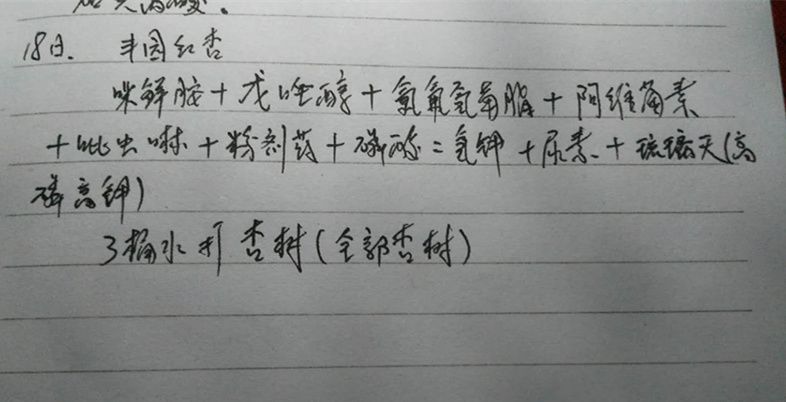 18日. 丰园红杏
咪鲜胺+戊唑醇+氯氟氰菊脂+阿维菌素
+吡虫啉+粉剂药+磷酸二氢钾+尿素+琉璃天(高
磷高钾)
3桶水 打 杏树(全部杏树)